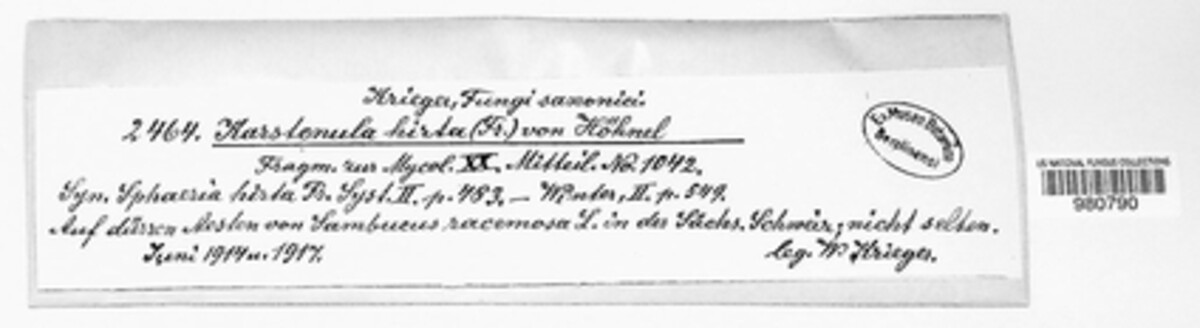 Krieger, Fungi saxonici.
2464. Karstenula hirta (Fr.) von Höhnel
Fragm. zur Mycol. XX. Mitteil. No. 1042.
Syn. Sphaeria hirta Fr. Syst. II. p. 483. — Winter, II. p. 549.
Auf dürren Aesten von Sambucus racemosa L. in der Sächs. Schweiz, nicht selten.
Juni 1914 u. 1917.
leg. W. Krieger.
Ex Museo Botanico
Berolinensi
US NATIONAL FUNGUS COLLECTIONS
980790